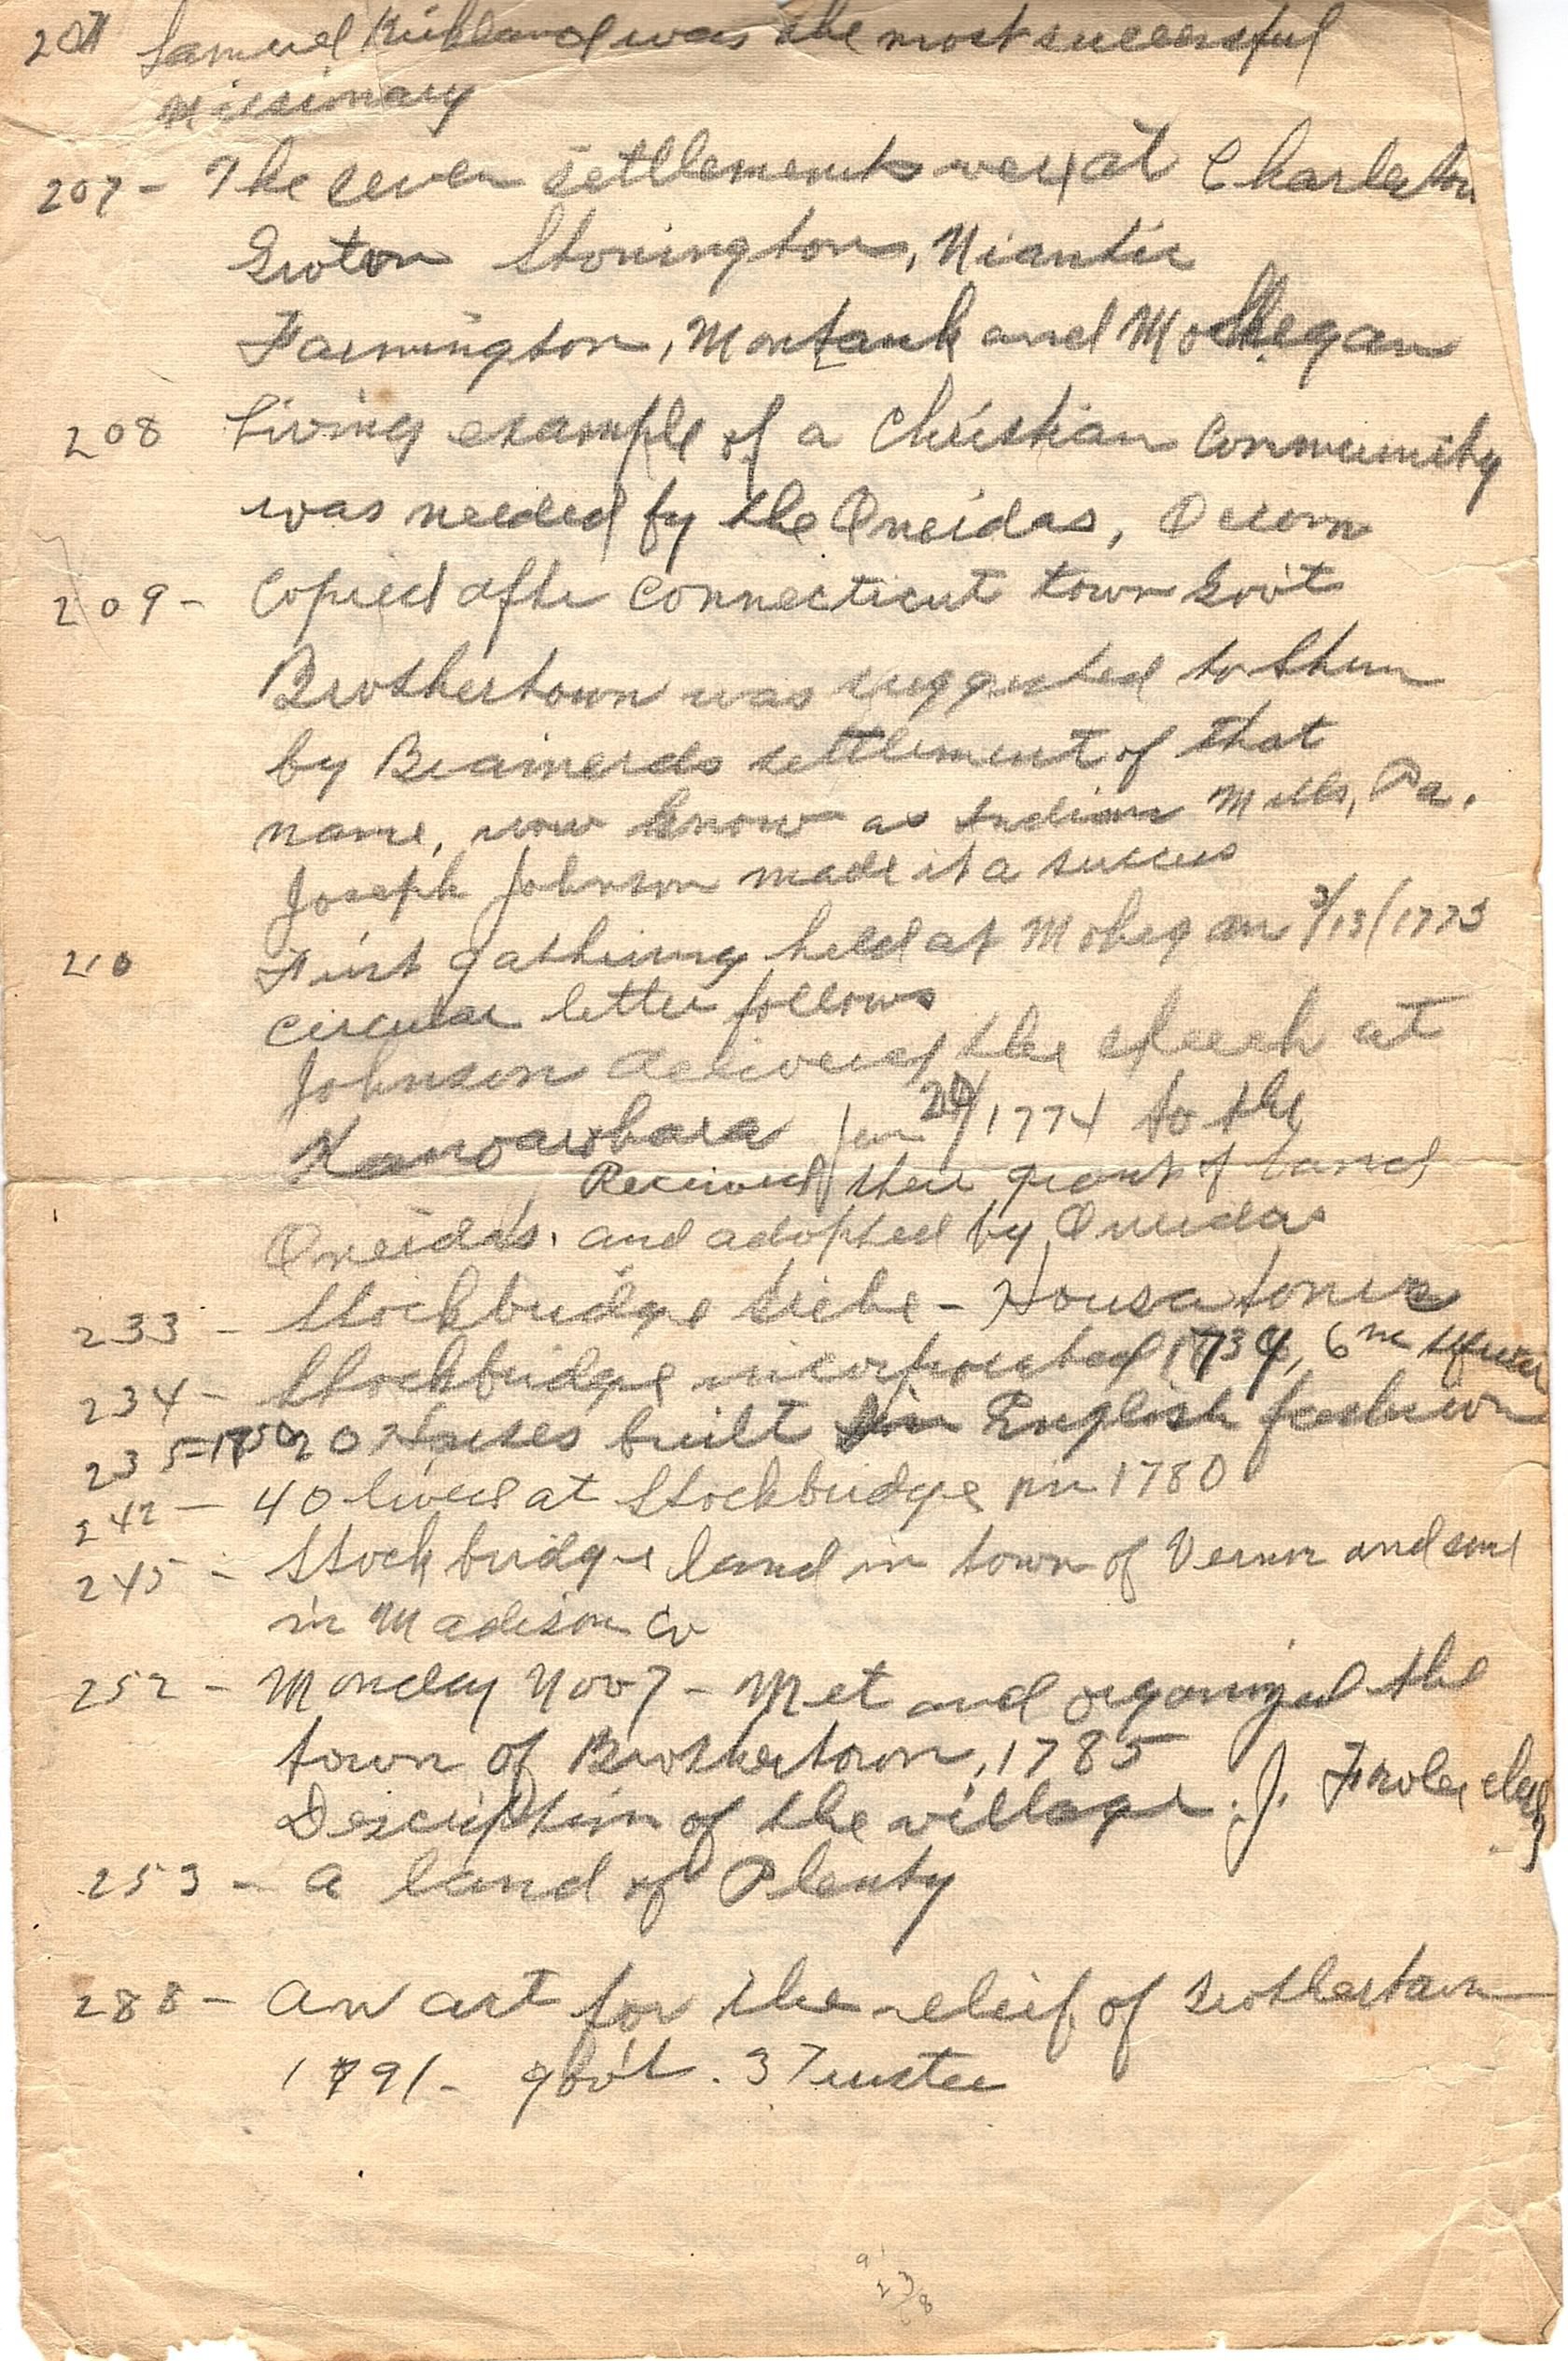 Samuel Kirkland was the most successful
Missinary
207- The seven settlements were at Charleston
Groton Stonington, Niantic
Farmington, Montauk and Mohegan
208 Living example of a Christian Community
was needed by the Oneidas, Occom
209- Copied after Connecticut town Gov't
Brothertown was suggested to them
by Brainerds settlement of that
name, now know as Indian Mills, Pa.
Joseph Johnson made it a success
210 First gathering held at Mohegan 3/13/1773
circular letter follows
Johnson delivered the speech at
Kanoarohara Jan 20/1774 to the
Received their grant of land
Oneidas. and adopted by Oneidas
233- Stockbridge tribe - Housatonic
234- Stockbridge incorporated 1739, 6 m square
235-1750 20 Houses built in English fashion
242- 40 lived at Stockbridge in 1780
245- Stockbridge land in town of Vernon and some
in Madison Co
252- Monday Nov 7 - Met and organized the
town of Brothertown, 1785
Description of the village. J. Fowler clerk
253- a land of Plenty
288- an act for the relief of Brothertown
1791- gov't. 3 Trustee